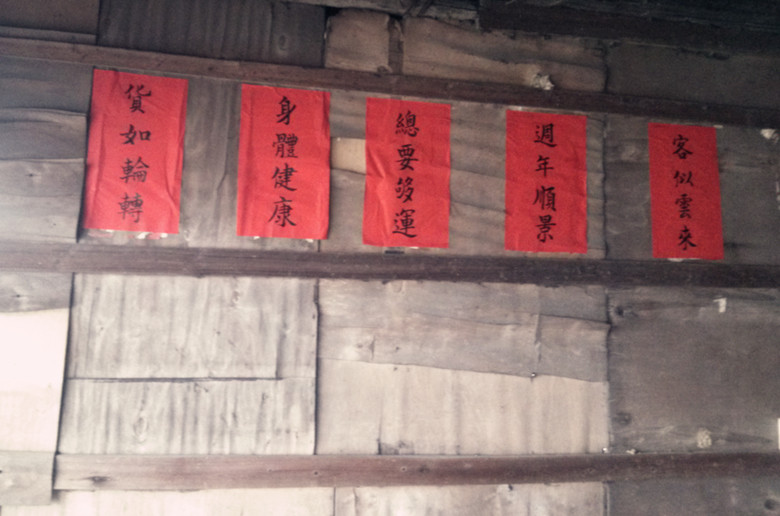 貨如輪轉
身體健康
總要夠運
週年順景
客似雲來